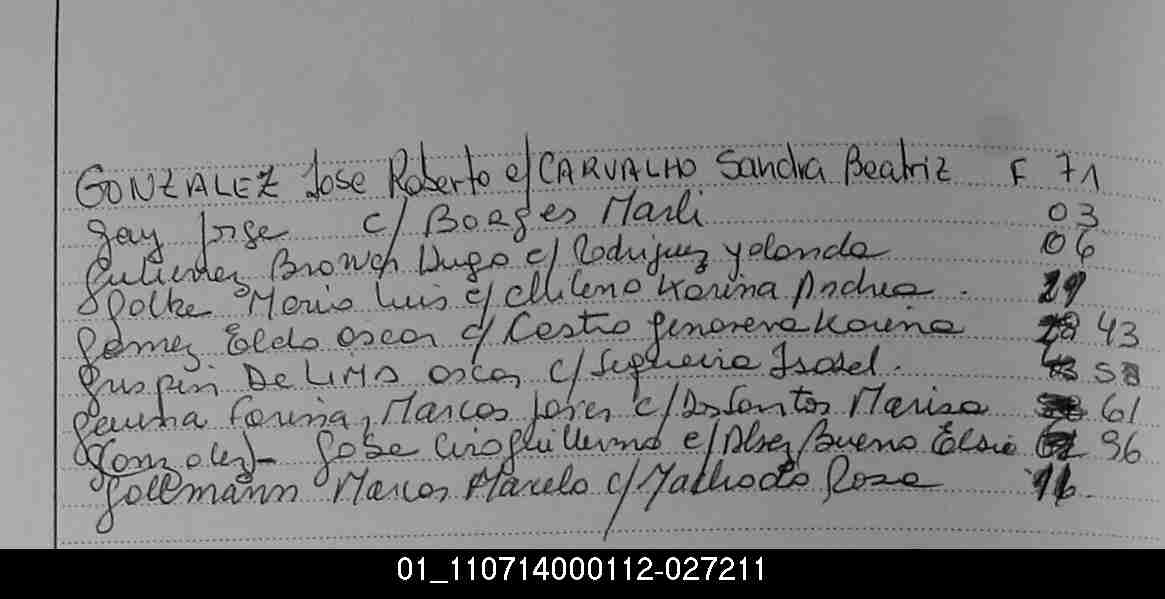 GONZALEZ Jose Roberto c/ CARVALHO Sandra Beatriz F 71
Gay Jorge c/ Borges Marli 03
Gutierrez Brower Hugo c/ Rodriguez Yolanda 06
Mario Luis c/ Mileno Karina Andrea . 29
Gomez Eldo Oscar c/ Castro Genoveva Karina 43
De LIMA Oscar c/ Sequeira Isabel . 58
Farina, Marcos Javier c/ Dos Santos Marisa 61
Gonzalez Jose Ciro Guillermo c/ Bueno Elsie 96
Gollmann Marcos Marcelo c/ Machado Rosa 16.
01_110714000112-027211